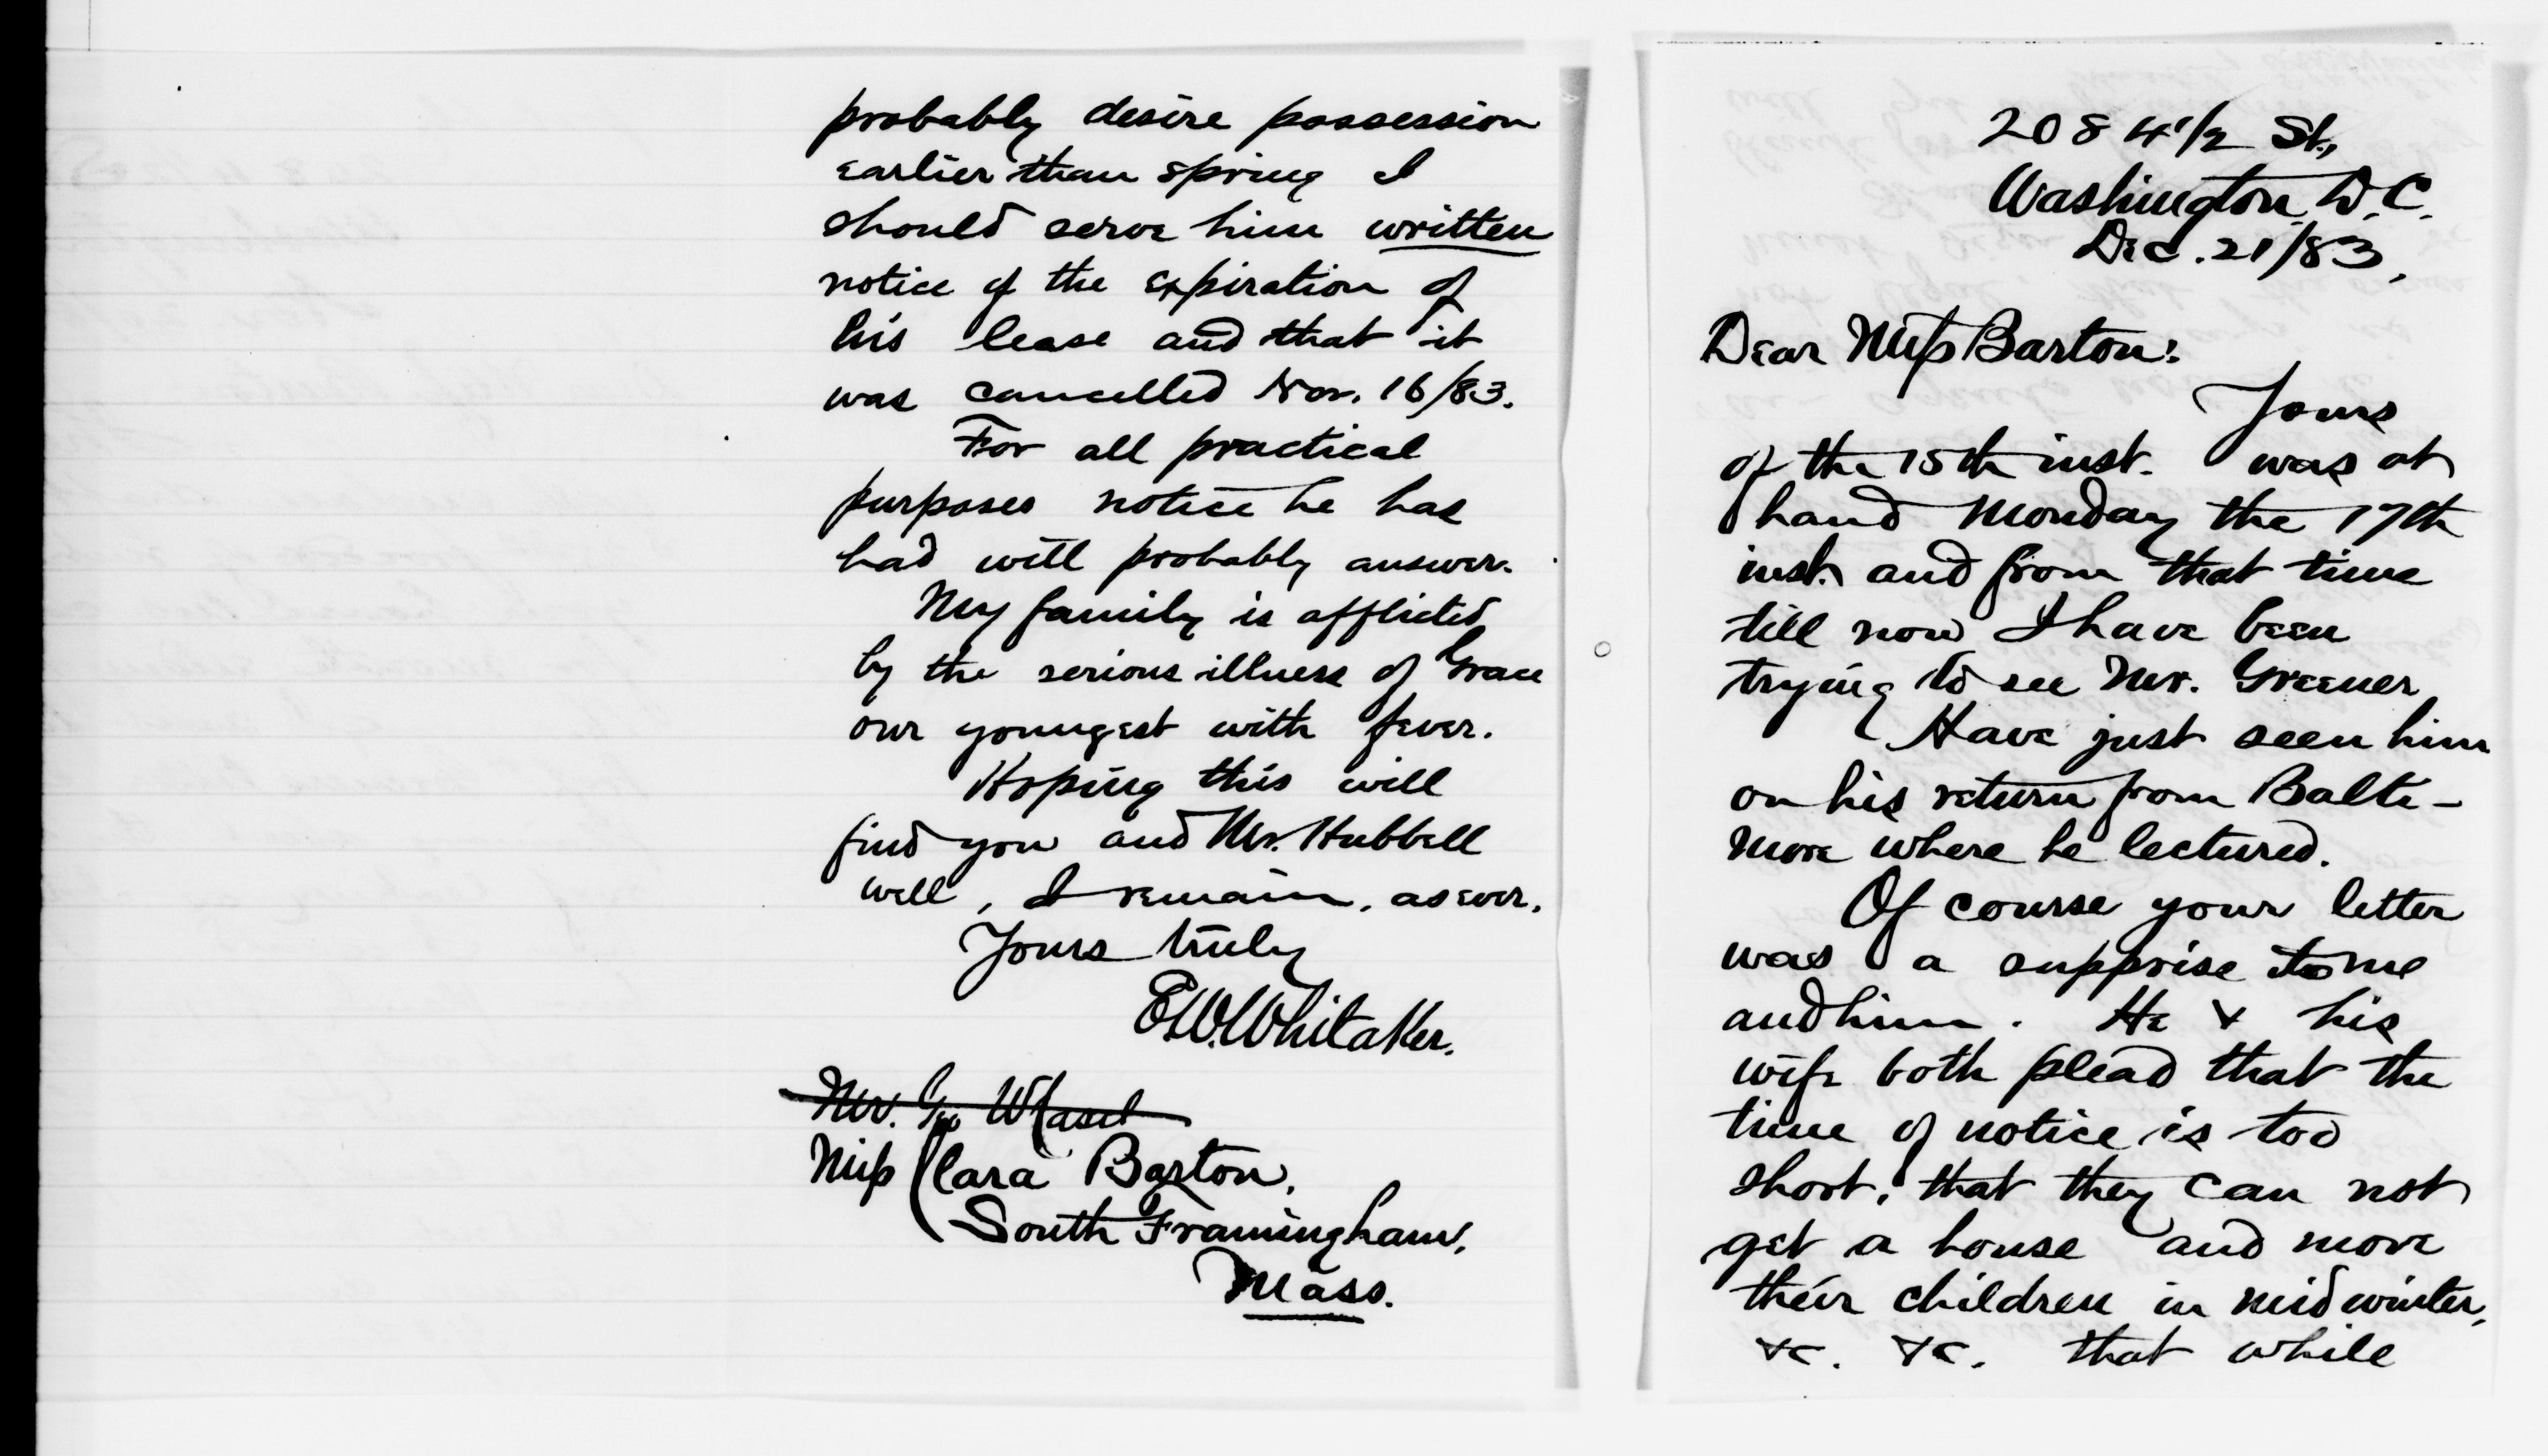 probably desire possession
earlier than spring I
should serve him written
notice of the expiration of
his lease and that it
was cancelled Nov. 16/83.
For all practical
purposes notice he has
had will probably answer.
My family is afflicted
by the serious illness of Grace
our youngest with fever.
Hoping this will
find you and Mr. Hubbell
well, I remain, as ever,
Yours truly
E.W. Whitaker.
Mr. Geo W
Miss Clara Barton,
South Framingham,
Mass.
208 4 1/2 St.,
Washington, D.C.
Dec. 21/83,
Dear Miss Barton:
Yours
of the 15th inst. was at
hand Monday the 17th
inst. and from that time
till now I have been
trying to see Mr. Greener
Have just seen him
on his return from Balti-
more where he lectured.
Of course your letter
was a supprise to me
and him. He & his
wife both plead that the
time of notice is too
short, that they can not
get a house and move
their children in midwinter,
&c. &c. that while